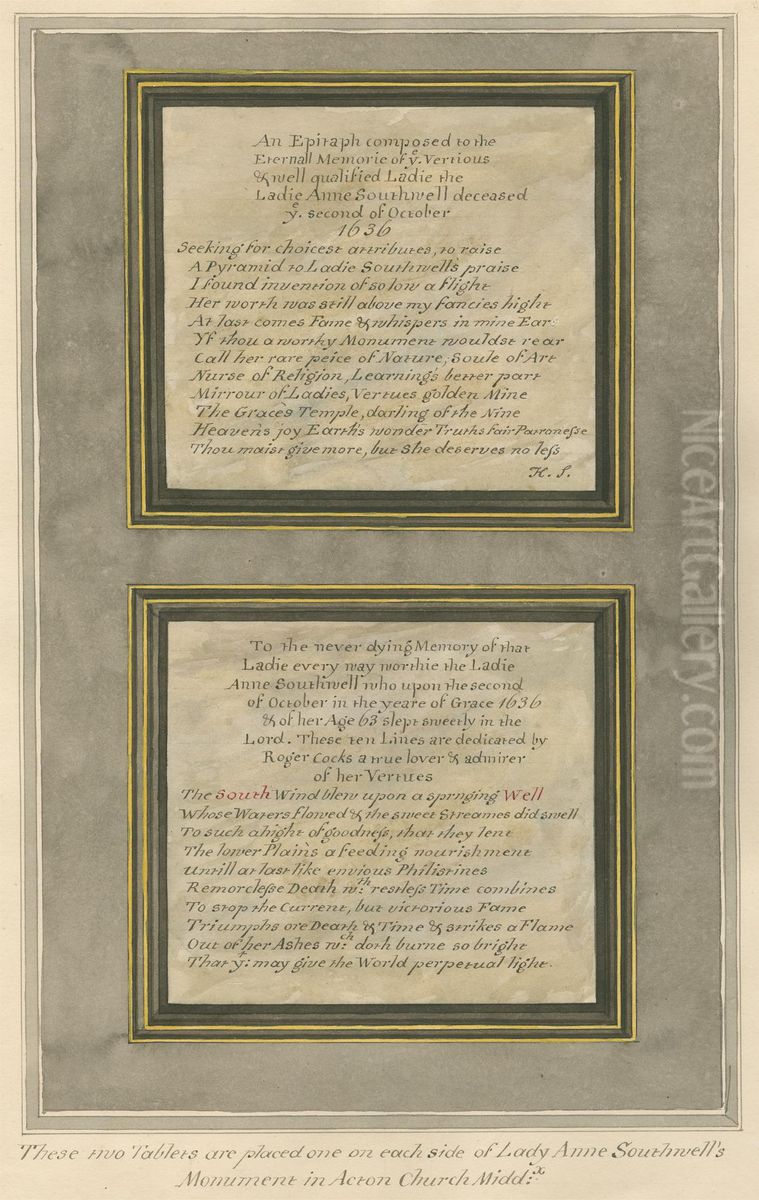 An Epitaph composed to the
Eternall Memorie of yᵉ. Vertious
& well qualified Ladie the
Ladie Anne Southwell deceased
yᵉ. second of October
1636
Seeking for choicest attributes, to raise
A Pyramid to Ladie Southwell's praise
I found invention of so low a flight
Her worth was still above my fancies hight
At last comes Fame & whispers in mine Ears
Yf thou a worthy Monument wouldst rear
Call her rare peice of Nature, Soule of Art
Nurse of Religion, Learning's better part
Mirrour of Ladies, Vertues golden Mine
The Graces Temple, darling of the Nine
Heaven's joy Earth's wonder Truths fair Patronesse
Thou maist give more, but She deserves no less
H. S.
To the never dying Memory of that
Ladie every way worthie the Ladie
Anne Southwell who upon the second
of October in the yeare of Grace 1636
& of her Age 63 slept sweetly in the
Lord. These ten Lines are dedicated by
Roger Cocks a true lover & admirer
of her Vertues
The South Wind blew upon a sprnging Well
Whose Waters flowed & the sweet Streames did swell
To such a hight of goodness, that they lent
The lower Plains a feeding nourishment
Untill at last like envious Philistines
Remorclesse Death wᵗʰ: restless Time combines
To stop the Current, but victorious Fame
Triumphs ore Death & Time & strikes a Flame
Out of her Ashes wᶜʰ: doth burne so bright
That yᵗ: may give the World perpetual light.
These two Tablets are placed one on each side of Lady Anne Southwell's
Monument in Acton Church Midd:ˣ
NiceArtGallery.com